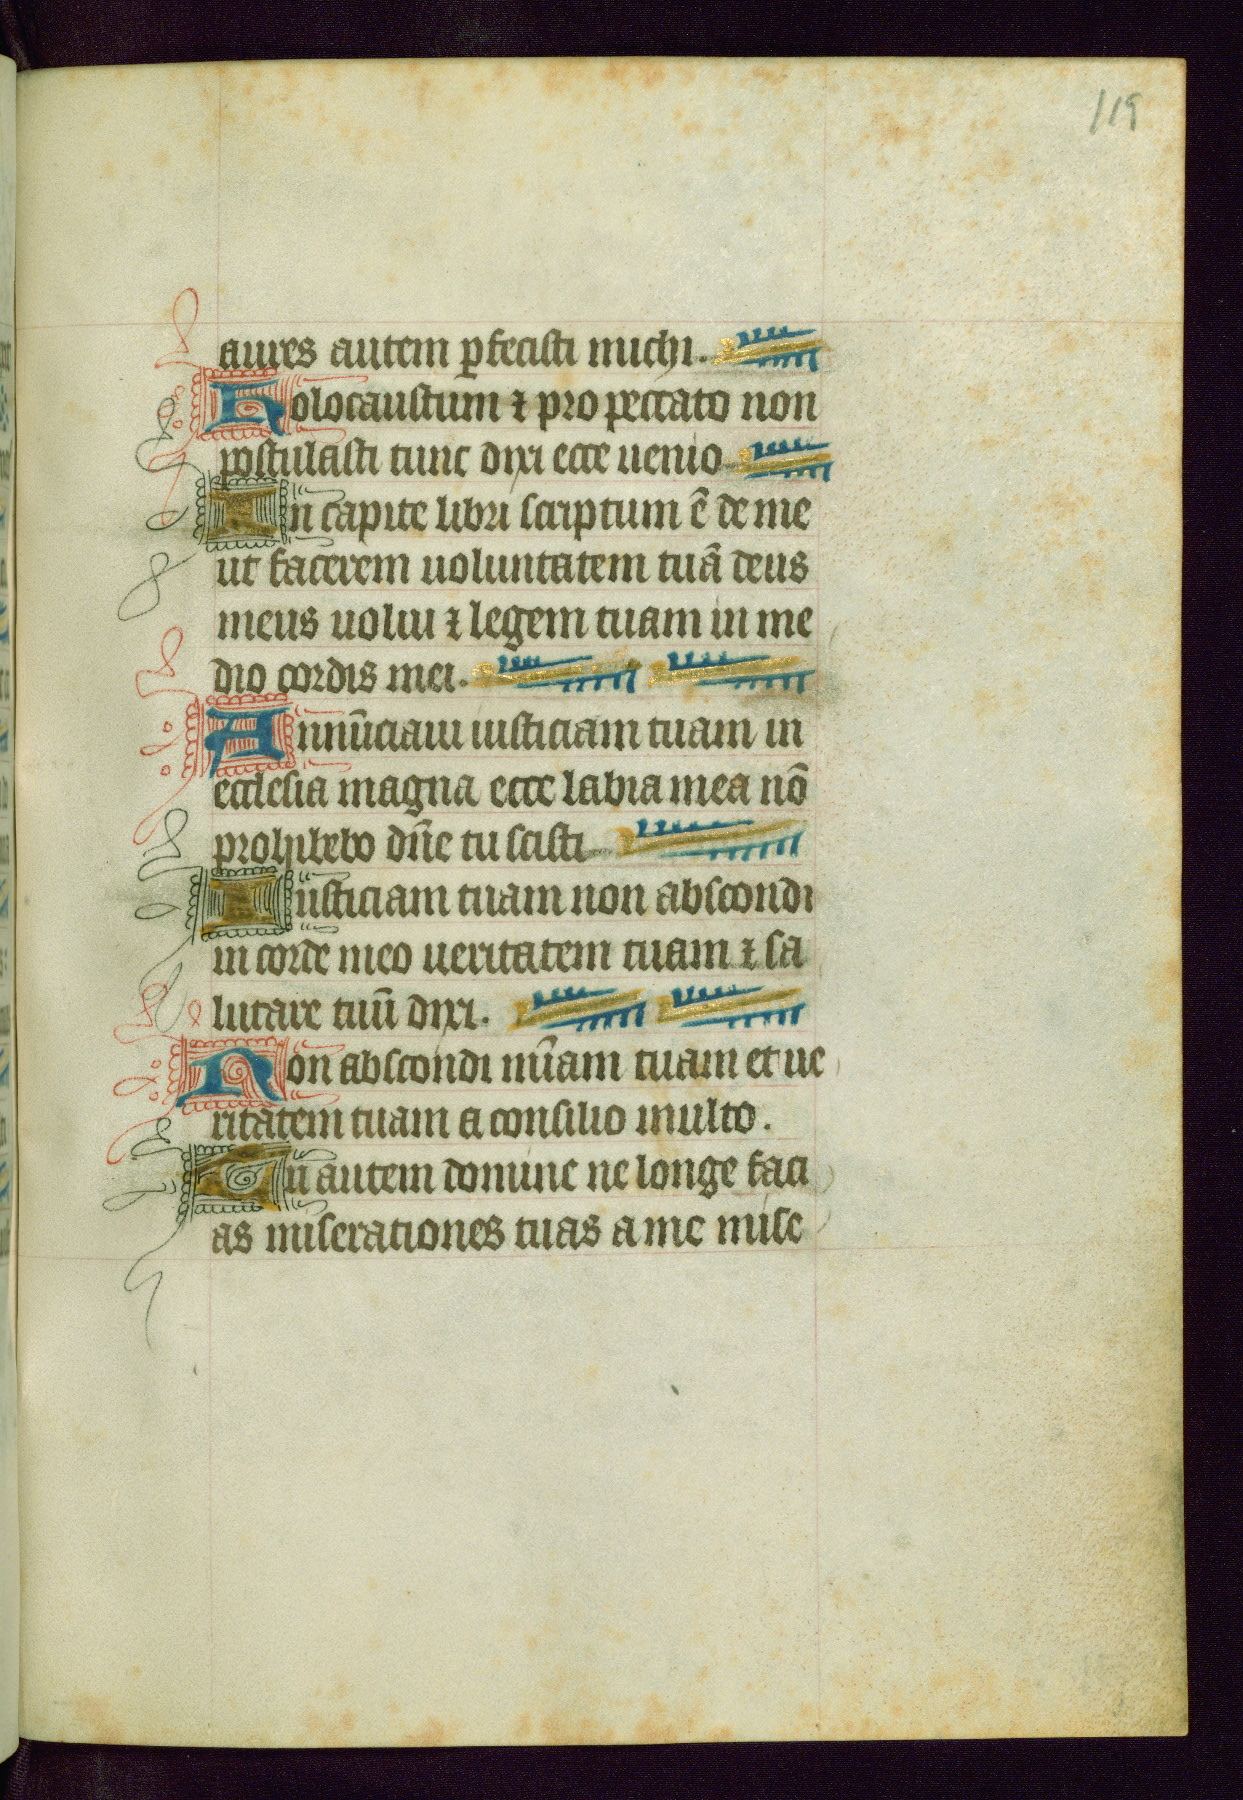 119
aures autem ꝑfecisti michi.
Holocaustum ⁊ pro peccato non
postulasti tunc dixi ecce uenio
In capite libri scriptum ē de me
ut facerem uoluntatem tuā deus
meus uolui ⁊ legem tuam in me
dio cordis mei.
Annūciaui iusticiam tuam in
ecclesia magna ecce labia mea nō
prohibebo dn̄e tu scisti
Iusticiam tuam non abscondi
in corde meo ueritatem tuam ⁊ sa
lutare tuū dixi.
Non abscondi mīam tuam et ue
ritatem tuam a consilio multo.
Tu autem domine ne longe faci
as miserationes tuas a me mise